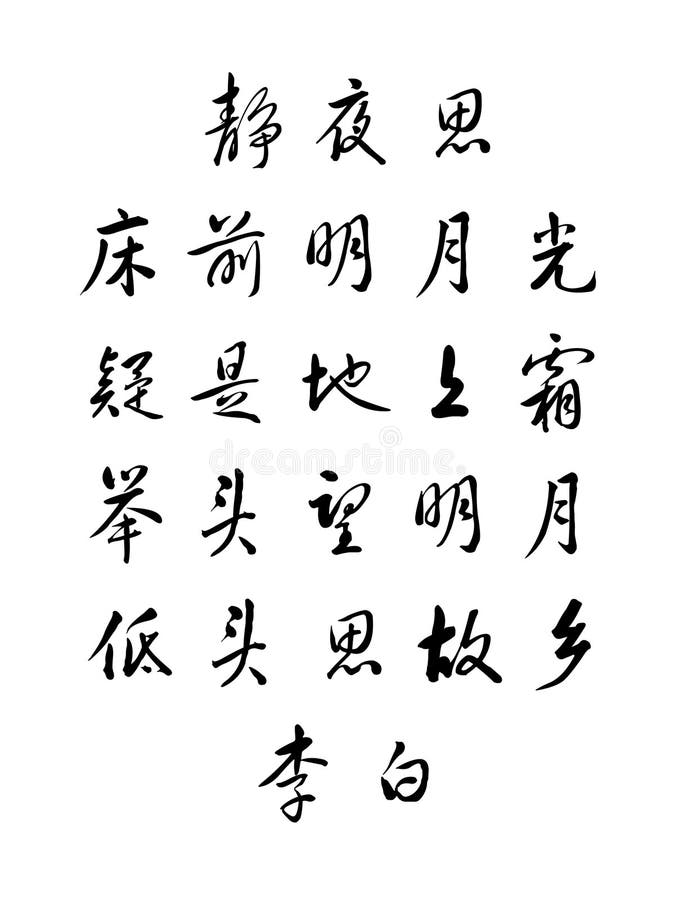 静夜思
床前明月光
疑是地上霜
举头望明月
dreamstime
低头思故乡
李白